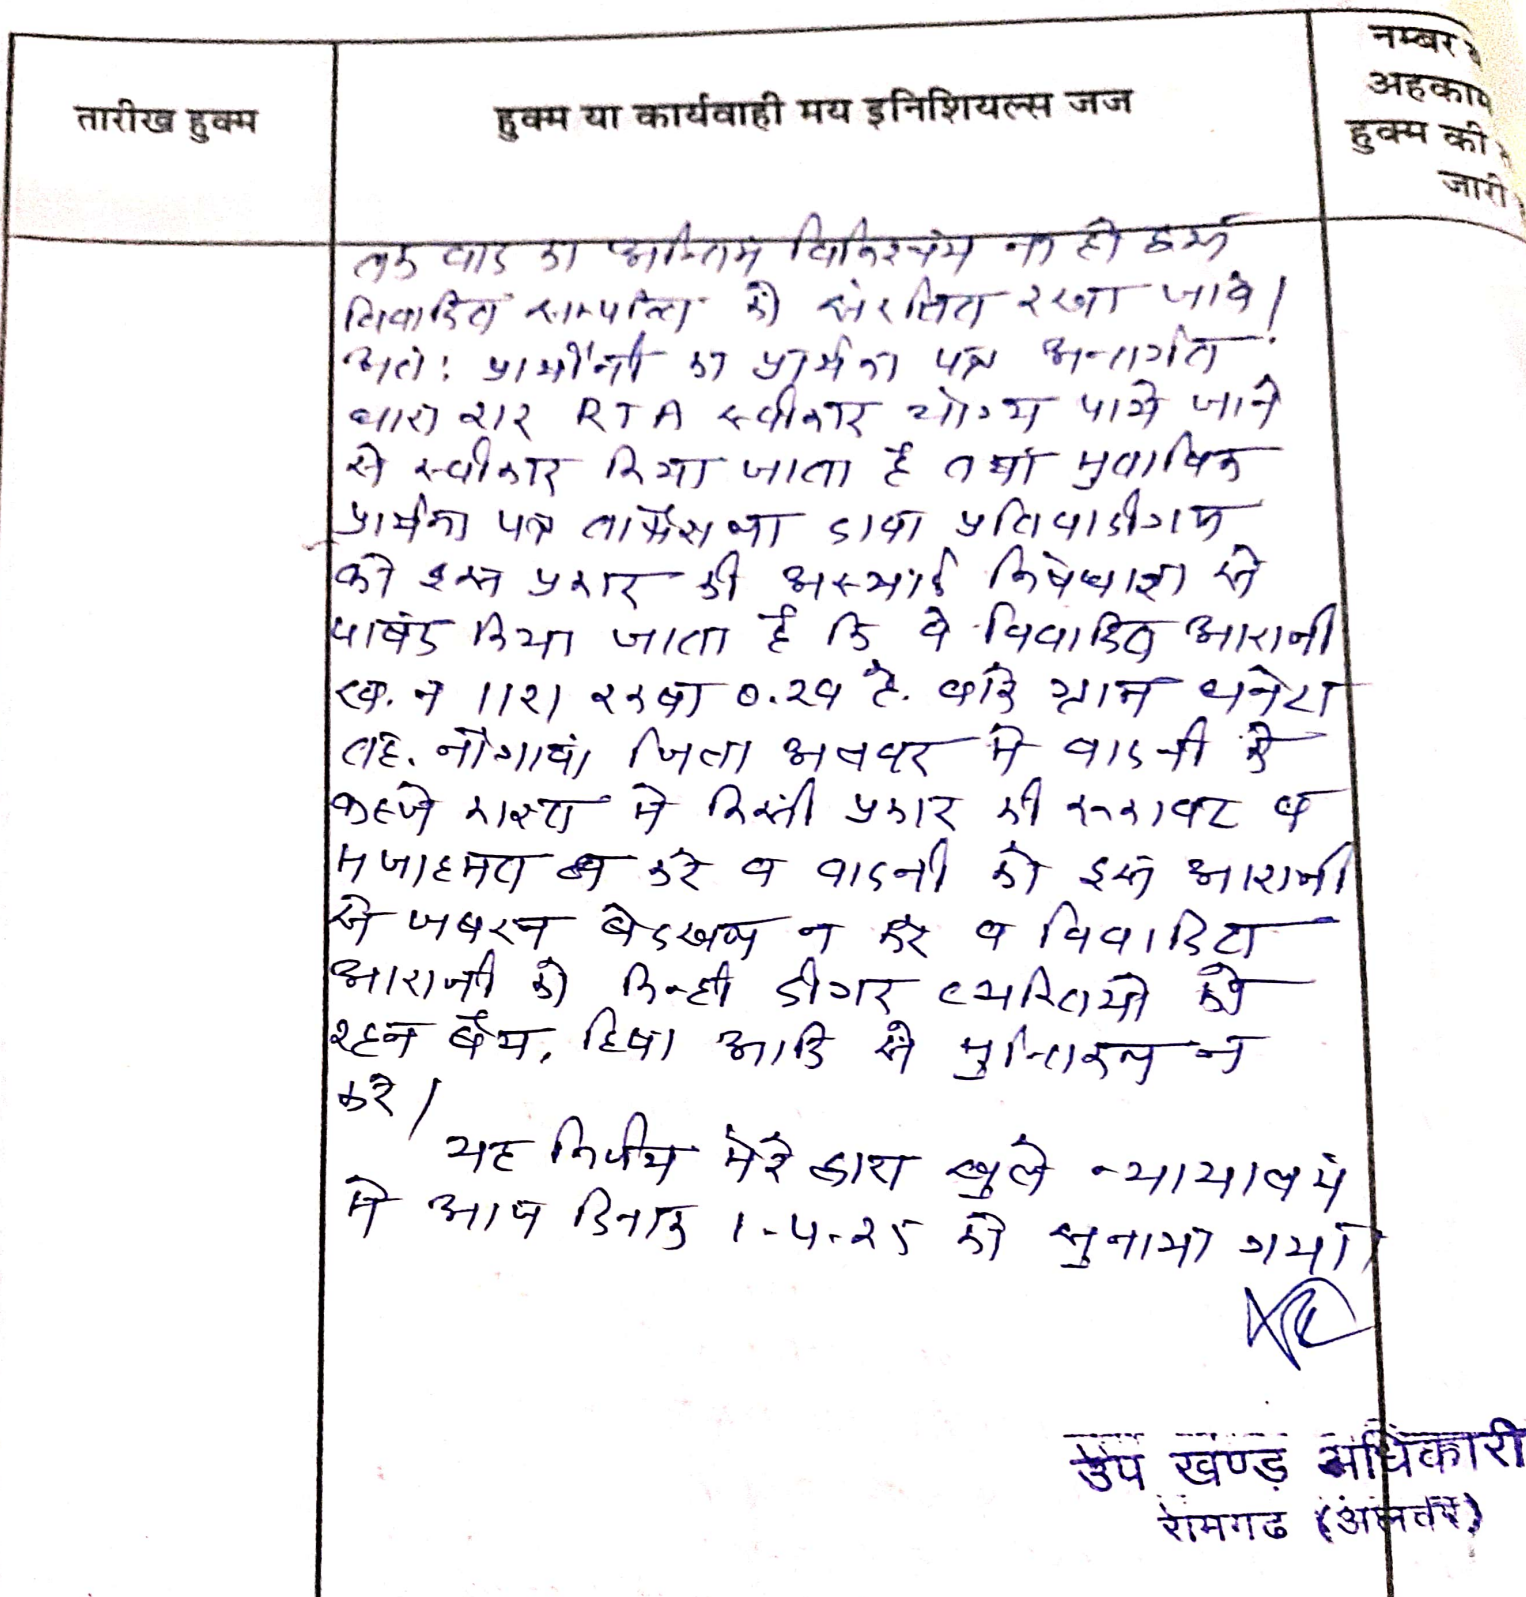 तारीख हुक्म
हुक्म या कार्यवाही मय इनिशियल्स जज
नम्बर
अहकाम
हुक्म की
जारी
तक वाद का अन्तिम विनिश्चय न हो जाये
विवादित सम्पत्ति को संरक्षित रखा जावे।
अतः प्रार्थीनी का प्रार्थना पत्र अन्तर्गत
धारा 212 RTA स्वीकार योग्य पाये जाने
से स्वीकार किया जाता है तथा मुताबिक
प्रार्थना पत्र ताफैसला दावा प्रतिवादीगण
को इस प्रकार की अस्थाई निषेधाज्ञा से
पाबंद किया जाता है कि वे विवादित आराजी
ख. न 1121 रकबा 0.29 है. वाके ग्राम धनेटा
तह. नौगावां जिला अलवर मे वादनी के
कब्जे काश्त मे किसी प्रकार की रूकावट व
मजाहमत न करे व वादनी को इस आराजी
से जबरन बेदखल न करे व विवादित
आराजी को किन्ही दीगर व्यक्तियो को
रहन बैय, हिबा आदि से मुन्तिकल न
करे।
यह निर्णय मेरे द्वारा खुले न्यायालय
मे आज दिनांक 1-4-25 को सुनाया गया।
उप खण्ड अधिकारी
रामगढ (अलवर)